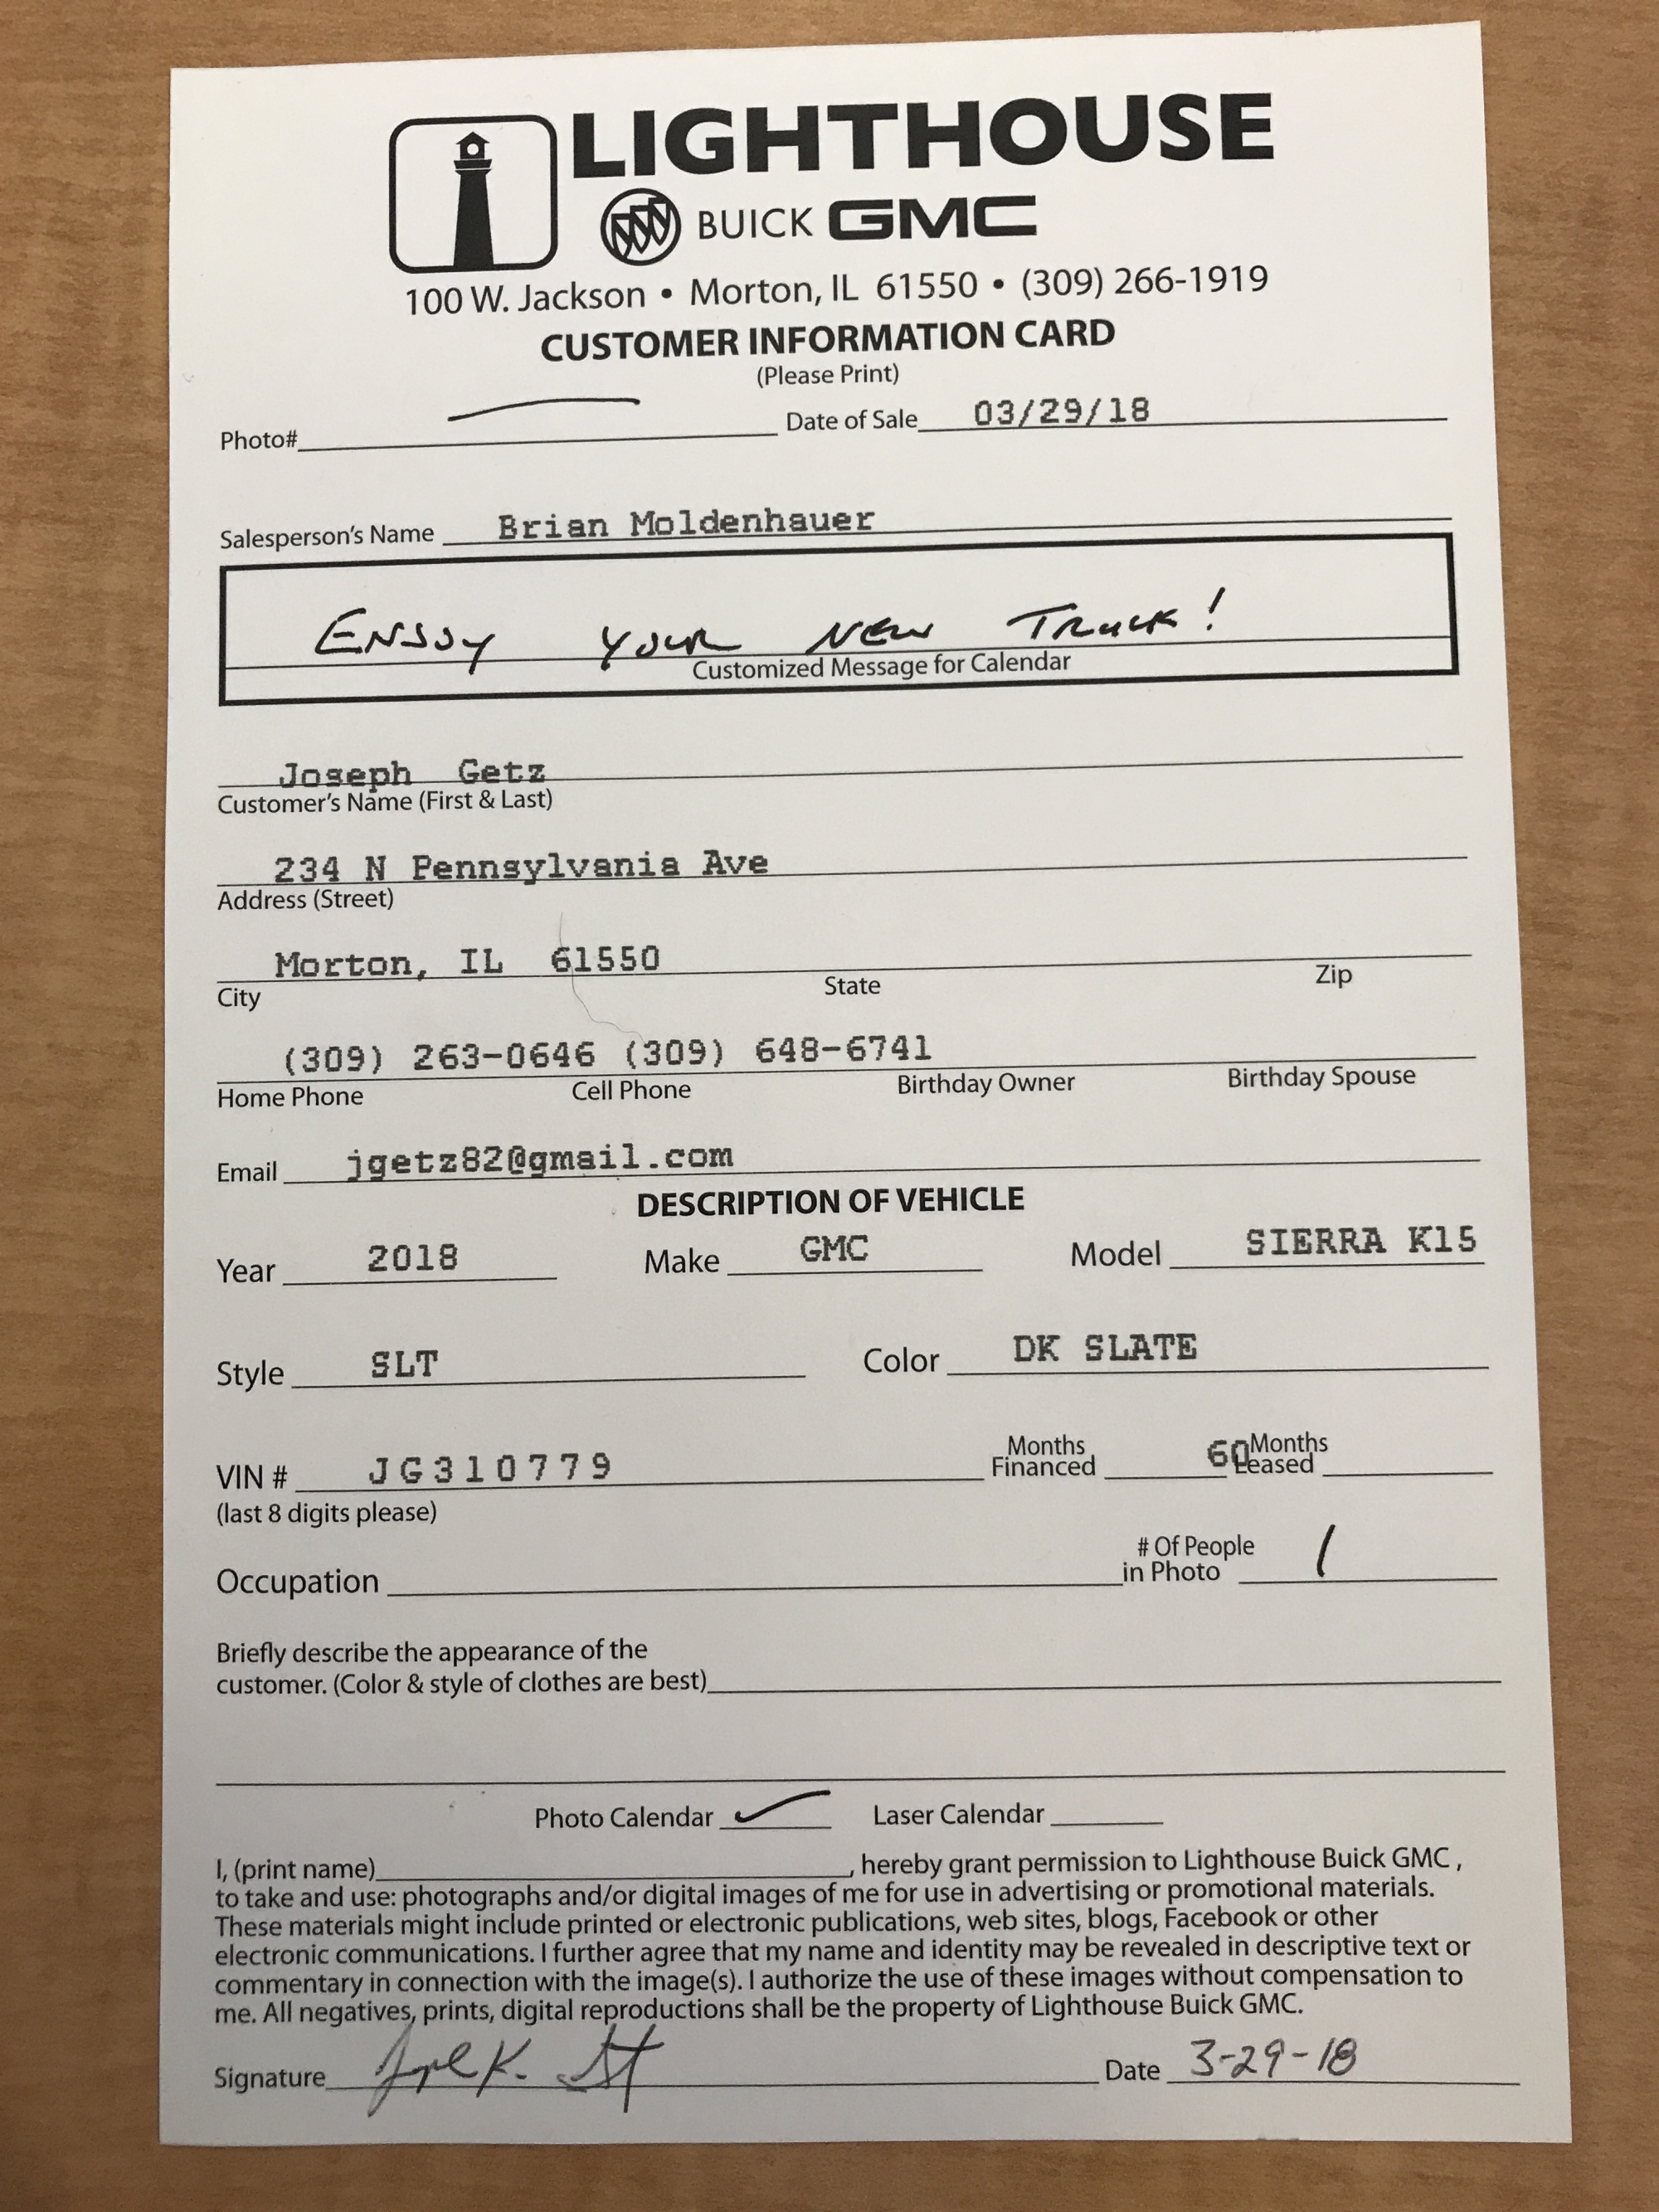 LIGHTHOUSE
BUICK GMC
100 W. Jackson • Morton, IL 61550 • (309) 266-1919
CUSTOMER INFORMATION CARD
(Please Print)
Photo# Date of Sale 03/29/18
Salesperson's Name Brian Moldenhauer
ENJOY YOUR NEW TRUCK!
Customized Message for Calendar
Joseph Getz
Customer's Name (First & Last)
234 N Pennsylvania Ave
Address (Street)
Morton, IL 61550
City State Zip
(309) 263-0646 (309) 648-6741
Home Phone Cell Phone Birthday Owner Birthday Spouse
Email jgetz82@gmail.com
DESCRIPTION OF VEHICLE
Year 2018 Make GMC Model SIERRA K15
Style SLT Color DK SLATE
VIN # JG310779 Months Financed 60 Months Leased
(last 8 digits please)
Occupation # Of People in Photo 1
Briefly describe the appearance of the
customer. (Color & style of clothes are best)
Photo Calendar ✓ Laser Calendar
I, (print name) , hereby grant permission to Lighthouse Buick GMC ,
to take and use: photographs and/or digital images of me for use in advertising or promotional materials.
These materials might include printed or electronic publications, web sites, blogs, Facebook or other
electronic communications. I further agree that my name and identity may be revealed in descriptive text or
commentary in connection with the image(s). I authorize the use of these images without compensation to
me. All negatives, prints, digital reproductions shall be the property of Lighthouse Buick GMC.
Signature Date 3-29-18